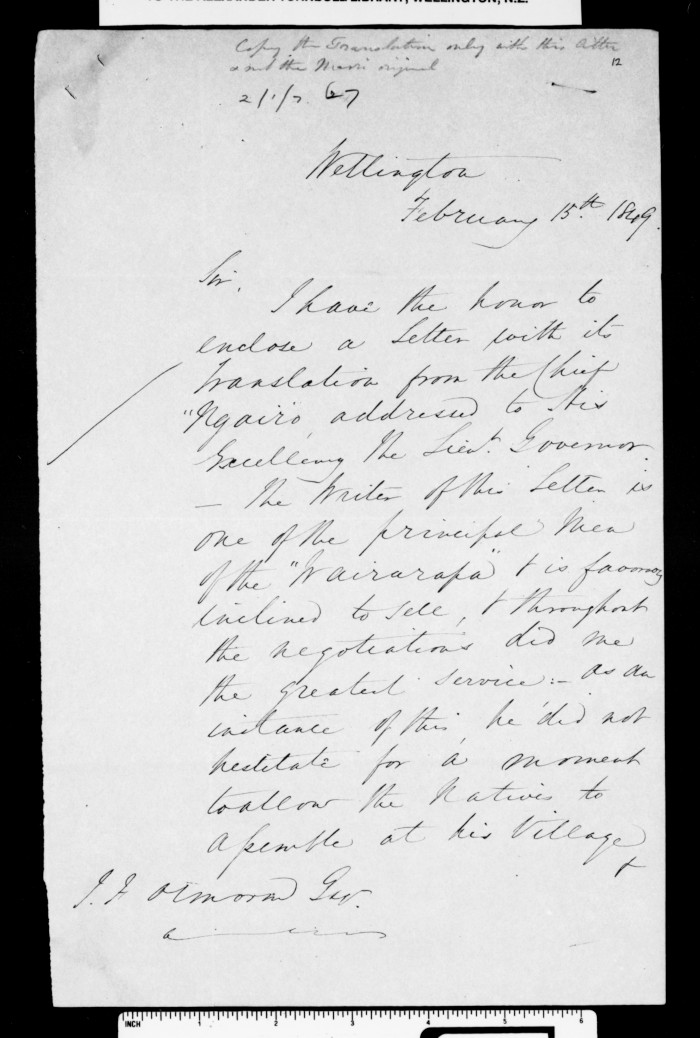 TO THE ALEXANDER TURNBULL LIBRARY, WELLINGTON, N.Z.
Copy the Translation only with this letter
& not the Maori original
12
2/1/7
Wellington
February 15th. 1849.
Sir,
I have the honor to
enclose a Letter with its
translation from the Chief
"Ngairo" addressed to His
Excellency the Lieut. Governor.
— The Writer of this Letter is
one of the principal Men
of the "Wairarapa" & is favorably
inclined to sell, & throughout
the negotiations did me
the greatest service:- As an
instance of this, he did not
hesitate for a moment
to allow the Natives to
assemble at his Village
&
INCH 1 2 3 4 5 6